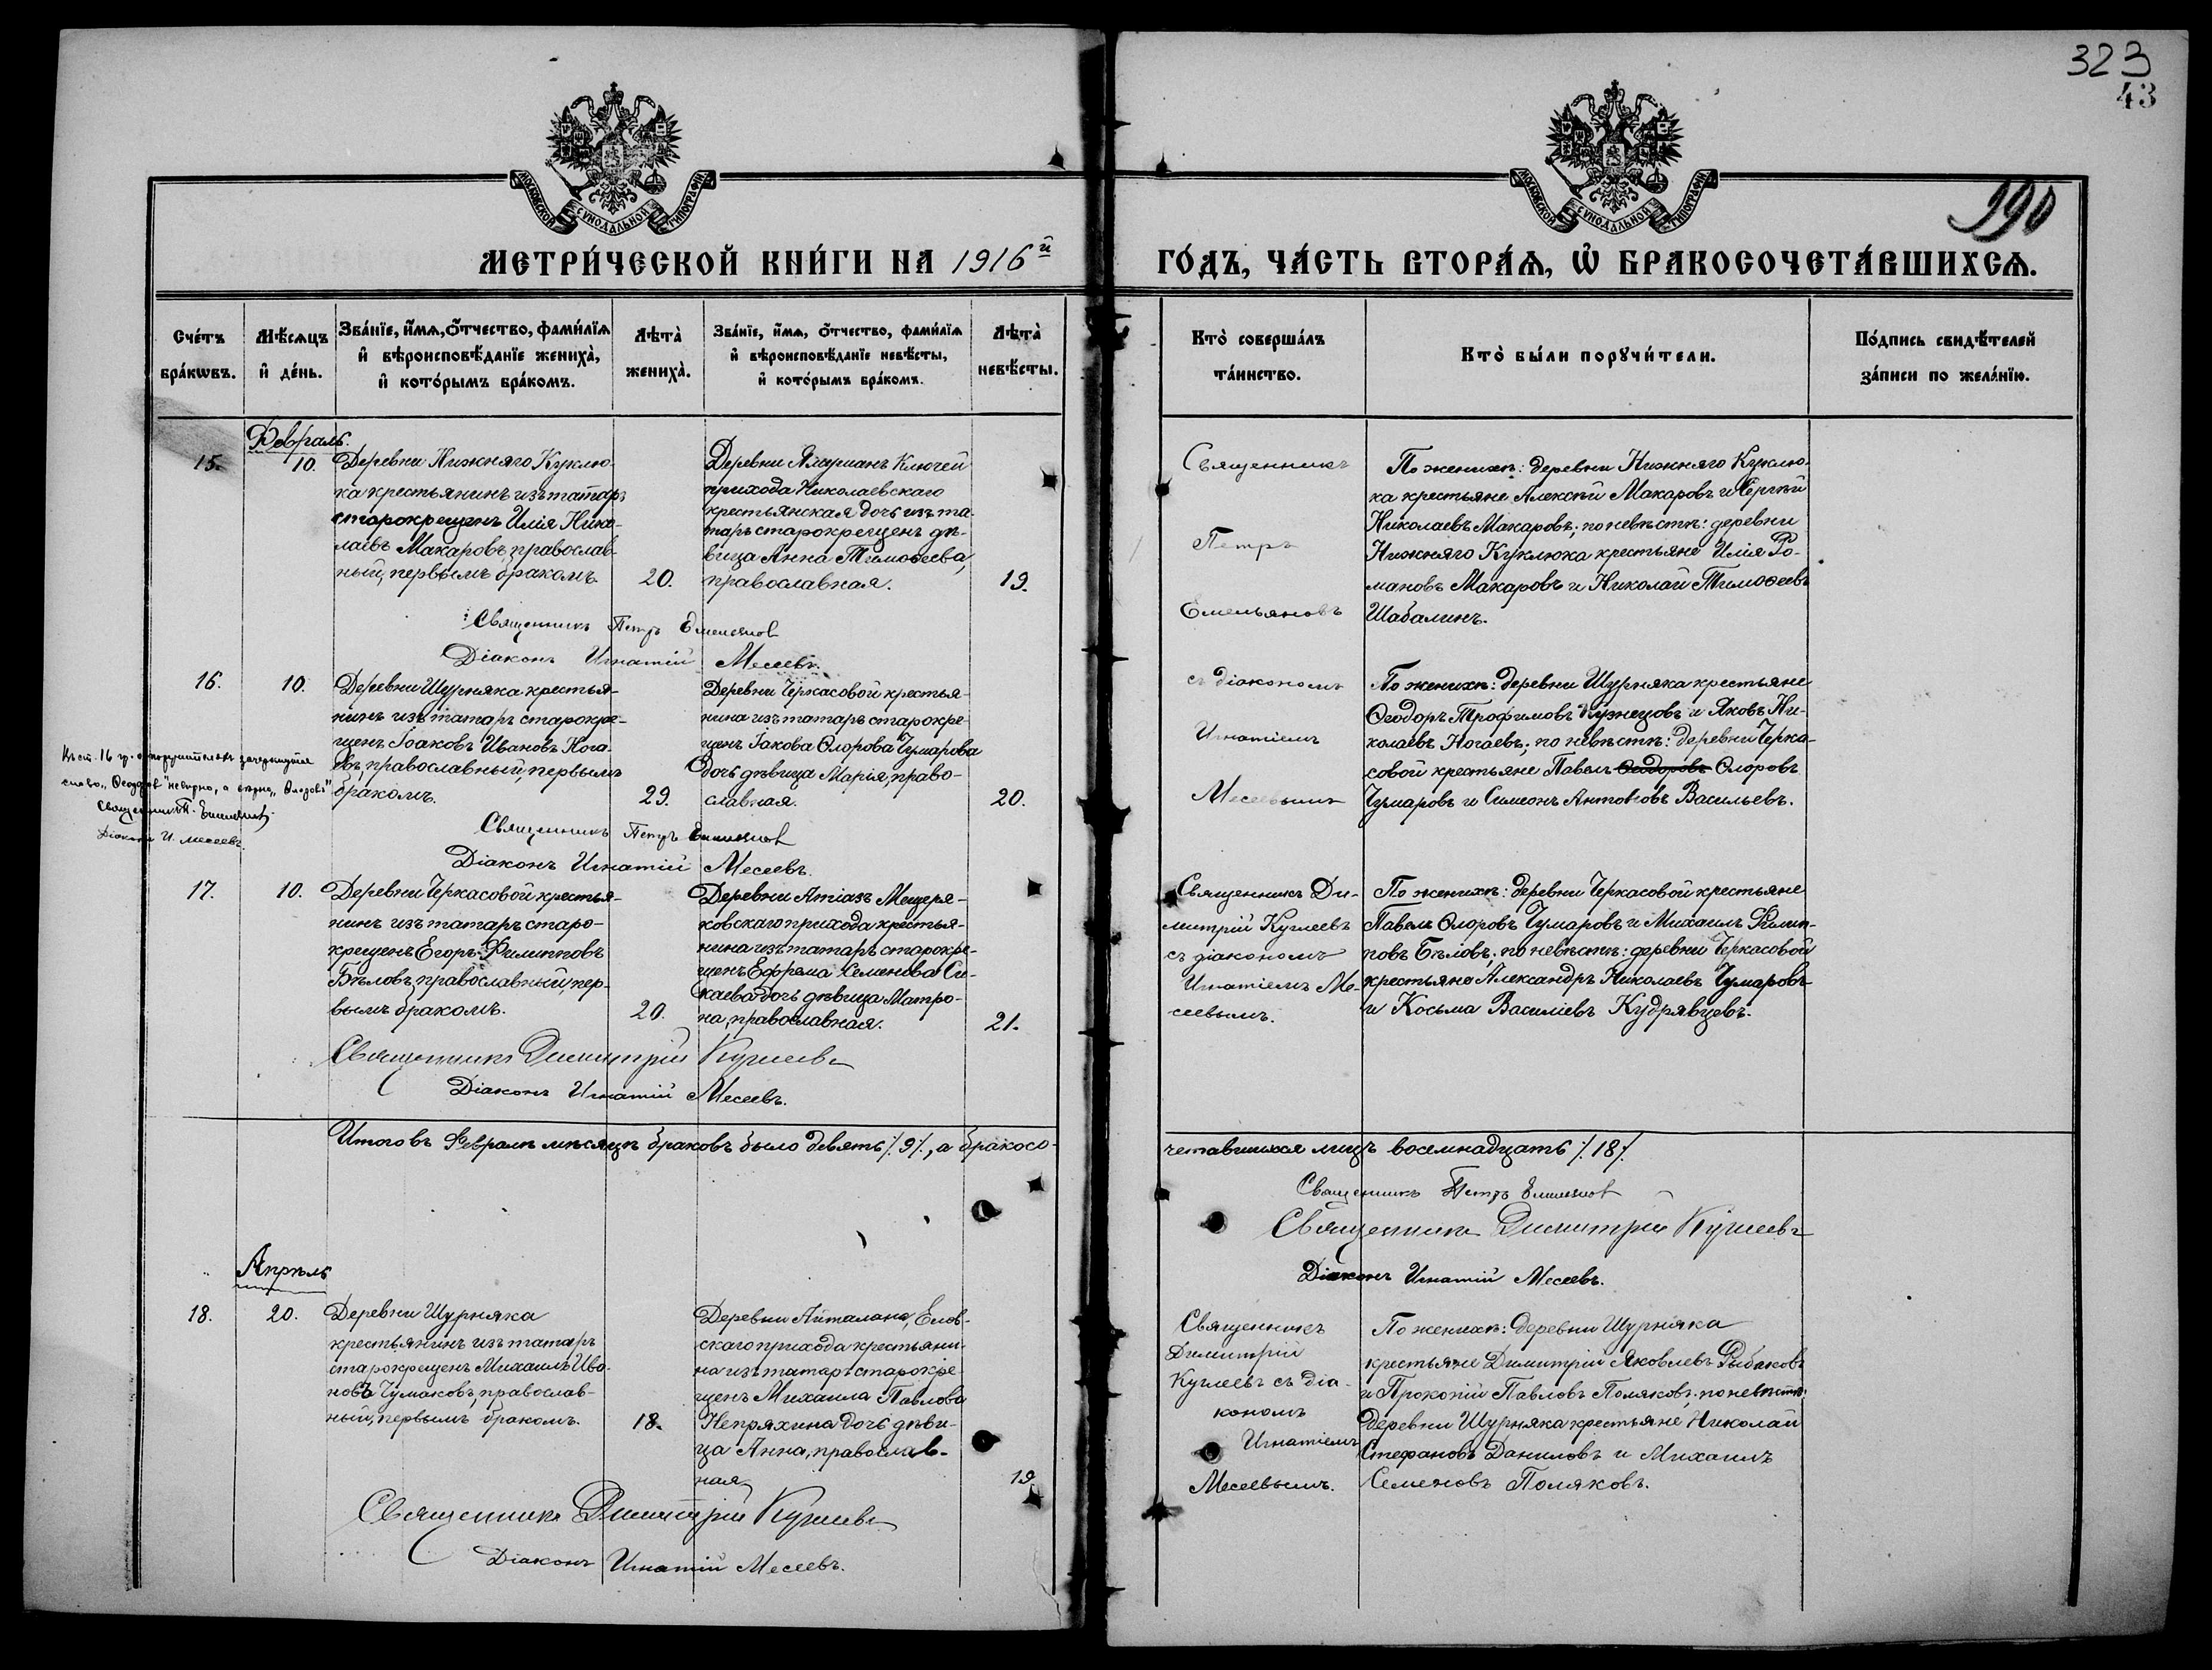 323
43
190
МОСКОВСКОЙ СѴНОДАЛЬНОЙ ТИПОГРАФІИ
МОСКОВСКОЙ СѴНОДАЛЬНОЙ ТИПОГРАФІИ
МЕТРИ́ЧЕСКОЙ КНИ́ГИ НА 1916й
ГО́ДЪ, ЧА́СТЬ ВТОРА́Ѧ, Ѡ҆ БРАКОСОЧЕТА́ВШИХСѦ.
Сче́тъ
бра́кѡвъ.
Мѣ́сѧцъ
и҆ де́нь.
Зва́нїе, и҆́мѧ, ѻ҆́тчество, фами́лїѧ
и҆ вѣроисповѣ́данїе жениха̀,
и҆ кото́рымъ бра́комъ.
Лѣ́та̀
жениха̀.
Зва́нїе, и҆́мѧ, ѻ҆́тчество, фами́лїѧ
и҆ вѣроисповѣ́данїе невѣ́сты,
и҆ кото́рымъ бра́комъ.
Лѣ́та̀
невѣ́сты.
Кто̀ соверша́лъ
та́инство.
Кто̀ бы́ли порꙋчи́тели.
По́дпись свидѣ́телей
за́писи по жела́нїю.
Февраль.
15.
10.
Деревни Нижняго Куклю-
ка крестьянинъ изъ татаръ
старокрещенъ Илія Нико-
лаевъ Макаровъ, православ-
ный, первымъ бракомъ.
20.
Деревни Ключей
прихода Николаевскаго
крестьянская дочь изъ та-
таръ старокрещенъ дѣ-
вица Анна Тимоѳеева,
православная.
19.
Священникъ
Петръ
Емельяновъ
По женихѣ: деревни Нижняго Куклю-
ка крестьяне Алексѣй Макаровъ и Сергѣй
Николаевъ Макаровъ; по невѣстѣ: деревни
Нижняго Куклюка крестьяне Илія Ро-
мановъ Макаровъ и Николай Тимоѳеевъ
Шабалинъ.
Священникъ Петръ Емельяновъ
Діаконъ Игнатій Месеевъ.
16.
10.
Деревни Шурняка крестья-
нинъ изъ татаръ старокре-
щенъ Іоаковъ Ивановъ Нога-
евъ, православный, первымъ
бракомъ.
29.
Деревни Черкасовой крестья-
нина изъ татаръ старокре-
щенъ Іакова Флорова Чумарова
дочь дѣвица Марія, право-
славная.
20.
съ діакономъ
Игнатіемъ
Месеевымъ
По женихѣ: деревни Шурняка крестьяне
Ѳеодоръ Трофимовъ Кузнецовъ и Яковъ Ни-
колаевъ Ногаевъ; по невѣстѣ: деревни Черка-
совой крестьяне Павелъ Ѳеодоровъ Флоровъ
Чумаровъ и Симеонъ Антоновъ Васильевъ.
Въ ст. 16 гр. о поручителяхъ зачеркнутое
слово „Ѳеодоровъ" невѣрно, а вѣрно „Флоровъ"
Священникъ П. Емельяновъ.
Діаконъ И. Месеевъ.
Священникъ Петръ Емельяновъ
Діаконъ Игнатій Месеевъ.
17.
10.
Деревни Черкасовой крестья-
нинъ изъ татаръ старо-
крещенъ Егоръ Филипповъ
Бѣловъ, православный, пер-
вымъ бракомъ.
20.
Деревни Атіазъ Мещеря-
ковскаго прихода крестья-
нина изъ татаръ старокре-
щенъ Ефрема Семенова Си-
каева дочь дѣвица Матро-
на, православная.
21.
Священникъ Ди-
митрій Кугмеевъ
съ діакономъ
Игнатіемъ Ме-
сеевымъ.
По женихѣ: деревни Черкасовой крестьяне
Павелъ Флоровъ Чумаровъ и Михаилъ Филип-
повъ Бѣловъ; по невѣстѣ: деревни Черкасовой
крестьяне Александръ Николаевъ Чумаровъ
и Косьма Василіевъ Кудрявцевъ.
Священникъ Димитрій Кугмеевъ
Діаконъ Игнатій Месеевъ.
Итого въ Февралѣ мѣсяцѣ браковъ было девять /:9:/, а бракосо-
четавшихся лицъ восемнадцать /:18:/.
Священникъ Петръ Емельяновъ
Священникъ Димитрій Кугмеевъ
Діаконъ Игнатій Месеевъ.
Апрѣль
18.
20.
Деревни Шурняка
крестьянинъ изъ татаръ
старокрещенъ Михаилъ Ива-
новъ Чумаковъ, православ-
ный, первымъ бракомъ.
18.
Деревни Айталана, Елов-
скаго прихода крестьяни-
на изъ татаръ старокре-
щенъ Михаила Павлова
Непряхина дочь дѣви-
ца Анна, православ-
ная
19
Священникъ
Димитрій
Кугмеевъ съ діа-
кономъ
Игнатіемъ
Месеевымъ.
По женихѣ: деревни Шурняка
крестьяне Димитрій Яковлевъ Рыбаковъ
и Прокопій Павловъ Поляковъ; по невѣстѣ:
деревни Шурняка крестьяне Николай
Стефановъ Даниловъ и Михаилъ
Семеновъ Поляковъ.
Священникъ Димитрій Кугмеевъ
Діаконъ Игнатій Месеевъ.